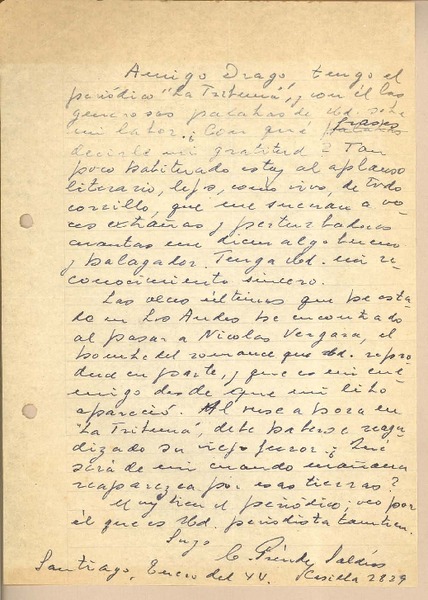 Amigo Drago, tengo el
periódico "La Tribuna", y con él las
generosas palabras de Ud. sobre
mi labor. ¿Con qué frases
decirle mi gratitud? Tan
poco habituado estoy al aplauso
literario, lejos, como vivo, de todo
corcillo, que me suenan a vo-
ces extrañas y perturbadoras
cuantas me dicen algo bueno
y halagador. Tenga Ud. mi re-
conocimiento sincero.
Las veces últimas que he esta-
do en Los Andes he encontrado
al pasar a Nicolás Vergara, el
hombre del romance que Ud. repro-
duce en parte, y que es mi ene-
migo desde que mi libro
apareció. Al verse ahora en
"La Tribuna", debe haberse reagu-
dizado su viejo furor. ¿Qué
será de mí cuando mañana
reaparezca por esas tierras?
Muy bien el periódico; veo por
él que es Ud. periodista también.
Suyo
C. Préndez Saldías
Santiago, Enero del 44. Casilla 2829